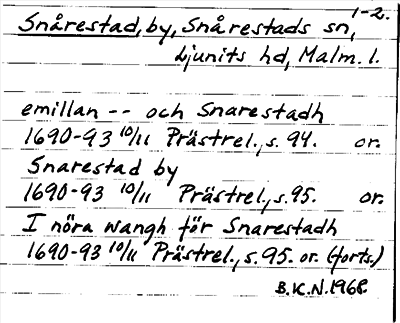 1-2.
Snårestad, by, Snårestads sn,
Ljunits hd, Malm. l.
emillan -- och Snarestadh
1690-93 10/11 Prästrel., s. 94. or.
Snarestad by
1690-93 10/11 Prästrel., s. 95. or.
I nöra wangh för Snarestadh
1690-93 10/11 Prästrel., s. 95. or. (forts.)
B.K.N. 1968